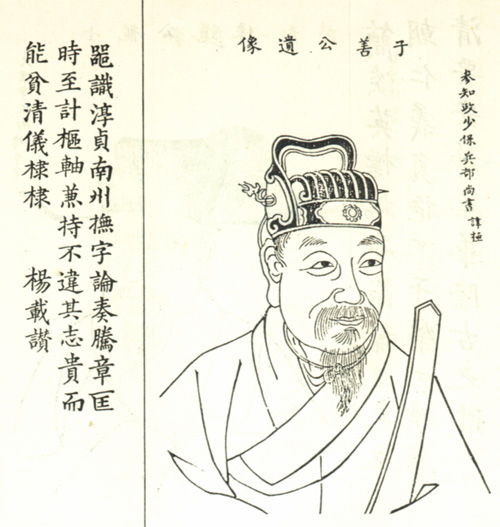 參知政少保兵部尚書諱極
子善公遺像
噐識淳貞南州撫字論奏騰章匡
時至計樞軸兼持不違其志貴而
能貧清儀棣棣 楊載讚